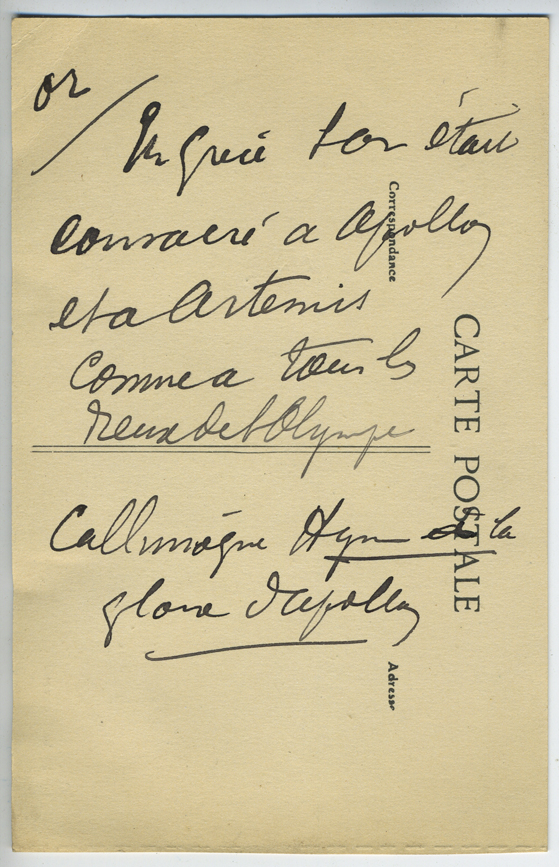 or/
En Grèce l'or était
consacré a Apollon
et a Artemis
comme a tous les
Dieux de l'Olympe
Callimaque Hymne à la
gloire d'Apollon
Correspondance
CARTE POSTALE
Adresse